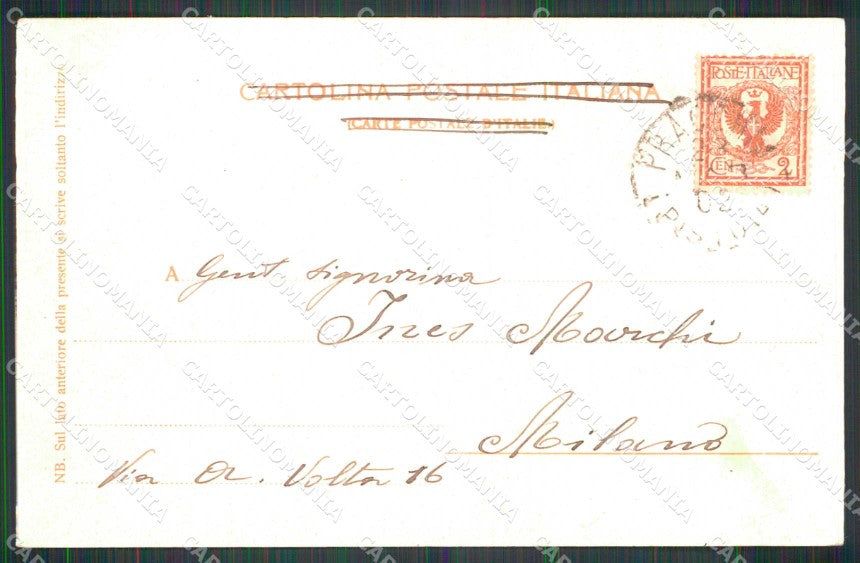 CARTOLINA POSTALE ITALIANA
(CARTE POSTALE D'ITALIE)
POSTE ITALIANE
CENT. 2
NB. Sul lato anteriore della presente si scrive soltanto l'indirizzo
A Gent Signorina
Ines Marchi
Milano
Via A. Volta 16
CARTOLINOMANIA